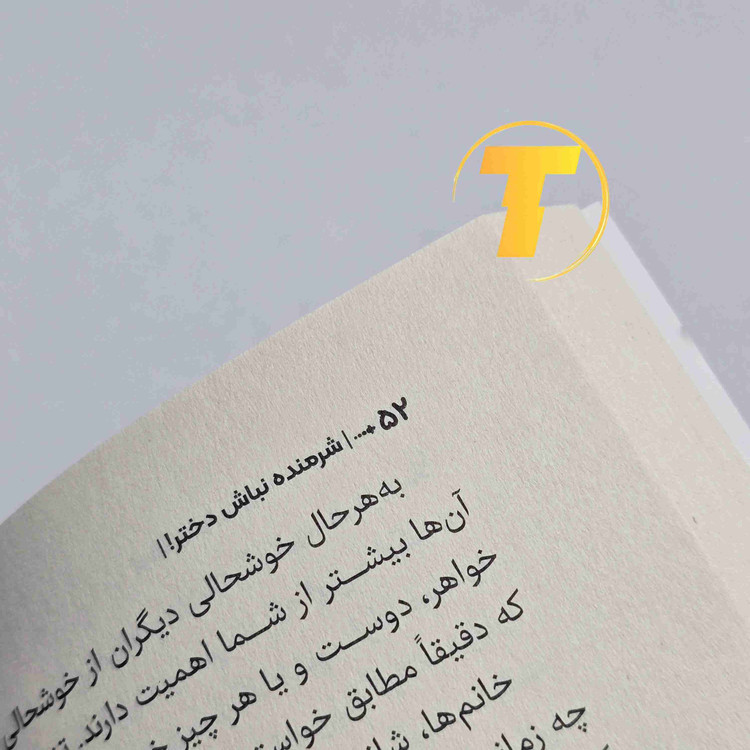 T
۵۲ ... | شرمنده نباش دختر! |
به‌هرحال خوشحالی دیگران از خوشحالی
آن‌ها بیشــتر از شــما اهمیت دارند.
خواهر، دوســت و یا هر چیز
که دقیقاً مطابق
خانم‌ها،
چه